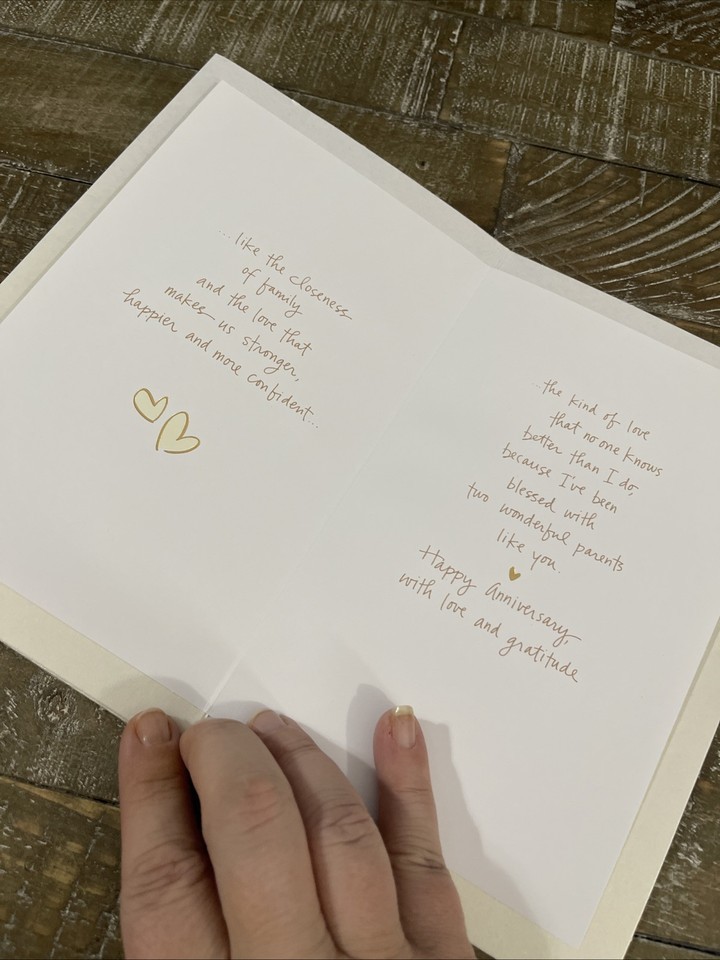 ...like the closeness
of family
and the love that
makes us stronger,
happier and more confident...
...the kind of love
that no one knows
better than I do,
because I've been
blessed with
two wonderful parents
like you.
Happy Anniversary,
with love and gratitude